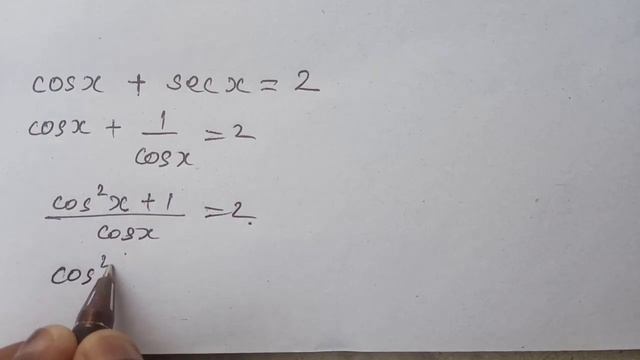 cosx + secx = 2
cosx + 1/cosx = 2
cos²x + 1/cosx = 2.
cos²